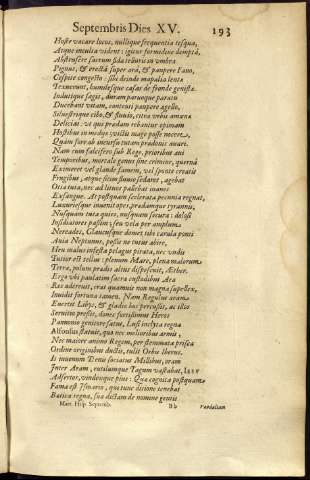 Septembris Dies XV. 193
Hoste vacare locus, nullisque frequentia tesqua,
Atque inculta vident: igitur formidine dempta,
Abstrusere sacrum sida telluris in umbra
Pignus, & erecta super ara, & paupere Fano,
Cespite congesto: sibi deinde mapalia lenta
Texuerunt, humilesque casas de fronde genista.
Indutique sagis, duram parumque paratu
Ducebant vitam, contenti paupere agello,
Silvestrique cibo, & fluviis, citra urbis amœna
Delicias: vt qui pradam rebantur opimam
Hostibus in modijs victis magè posse nocere,
Quàm fore ab incursu tutam pradonis auare.
Nam cum falcifero sub Rege, prioribus aui
Temporibus, mortale genus sine crimine, querna
Exiret vel glande famem, vel sponte creatis
Frugibus, atque sitim fluuio sedaret, agebat
Otia tuta, nec ad lituos pallebat inanes
Exsangue. At postquam scelerata pecunia regnat,
Luxuriesque inuenit opes, pradamque tyrannis,
Nusquam tuta quies, nusquam secura: dolosi
Insidiatores passim: seu vela per amplum
Nereades, Glaucusque domet tibi carula ponti
Auia Neptunus, possis ne tutus abire,
Heu malus infesta pelagus pirata, nec vndis
Tutior est tellus: plenum Mare, plena malorum
Terra, polum pradis altus distoruit, Æther.
Ergo vbi paulatim sacra custodibus Ara
Res adcreuit, eras quamuis non magna supellex,
Inuidit fortuna tamen. Nam Regulus aram
Euertit Libys, & gladio hos perculit, ac illo
Seruitio pressit, donec fortissimus Heros
Pannonio genitore satus, Lusi inclyta regna
Alfonsus statuit, quo nec molioribus armis,
Nec maiore animo Regem, per stemmata prisca
Ordine originibus ductis, tulit Orbis Iberus.
Is numerum Demi sociatus Millibus, oram
Inter Aram, rutilumque Tagum vastabat,
Adsertor, vindexque pius: Qua cognita postquam
Fama est Ismario, que tunc ditione tenebat
Batica regna, sua dictam de nomine gentis
Mart. Hisp. Septemb. Bb Vandaliam